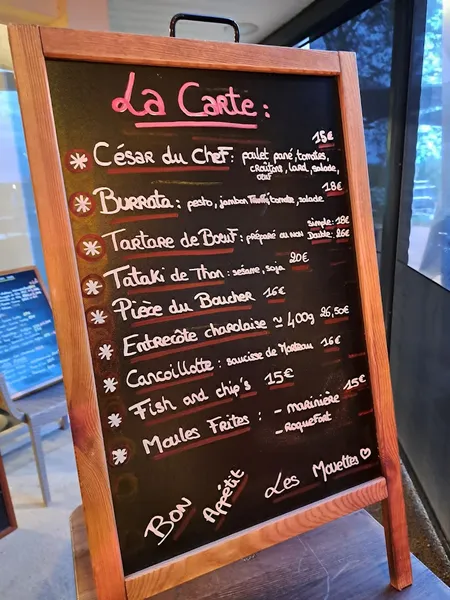 La Carte :
César du Chef : poulet pané, tomates, 15€
croûtons, lard, salade,
oeuf
Burrata : pesto, jambon, tomate, salade 18€
Tartare de Boeuf : préparé ou non simple : 18€
Double : 26€
Tataki de Thon : sésame, soja 20€
Pièce du Boucher 16€
Entrecôte charolaise ≃ 400g 26,50€
Cancoillotte : saucisse de Morteau 16€
Fish and chip's 15€
Moules Frites : - marinière 15€
- Roquefort
Bon Appétit Les Mouettes ♡